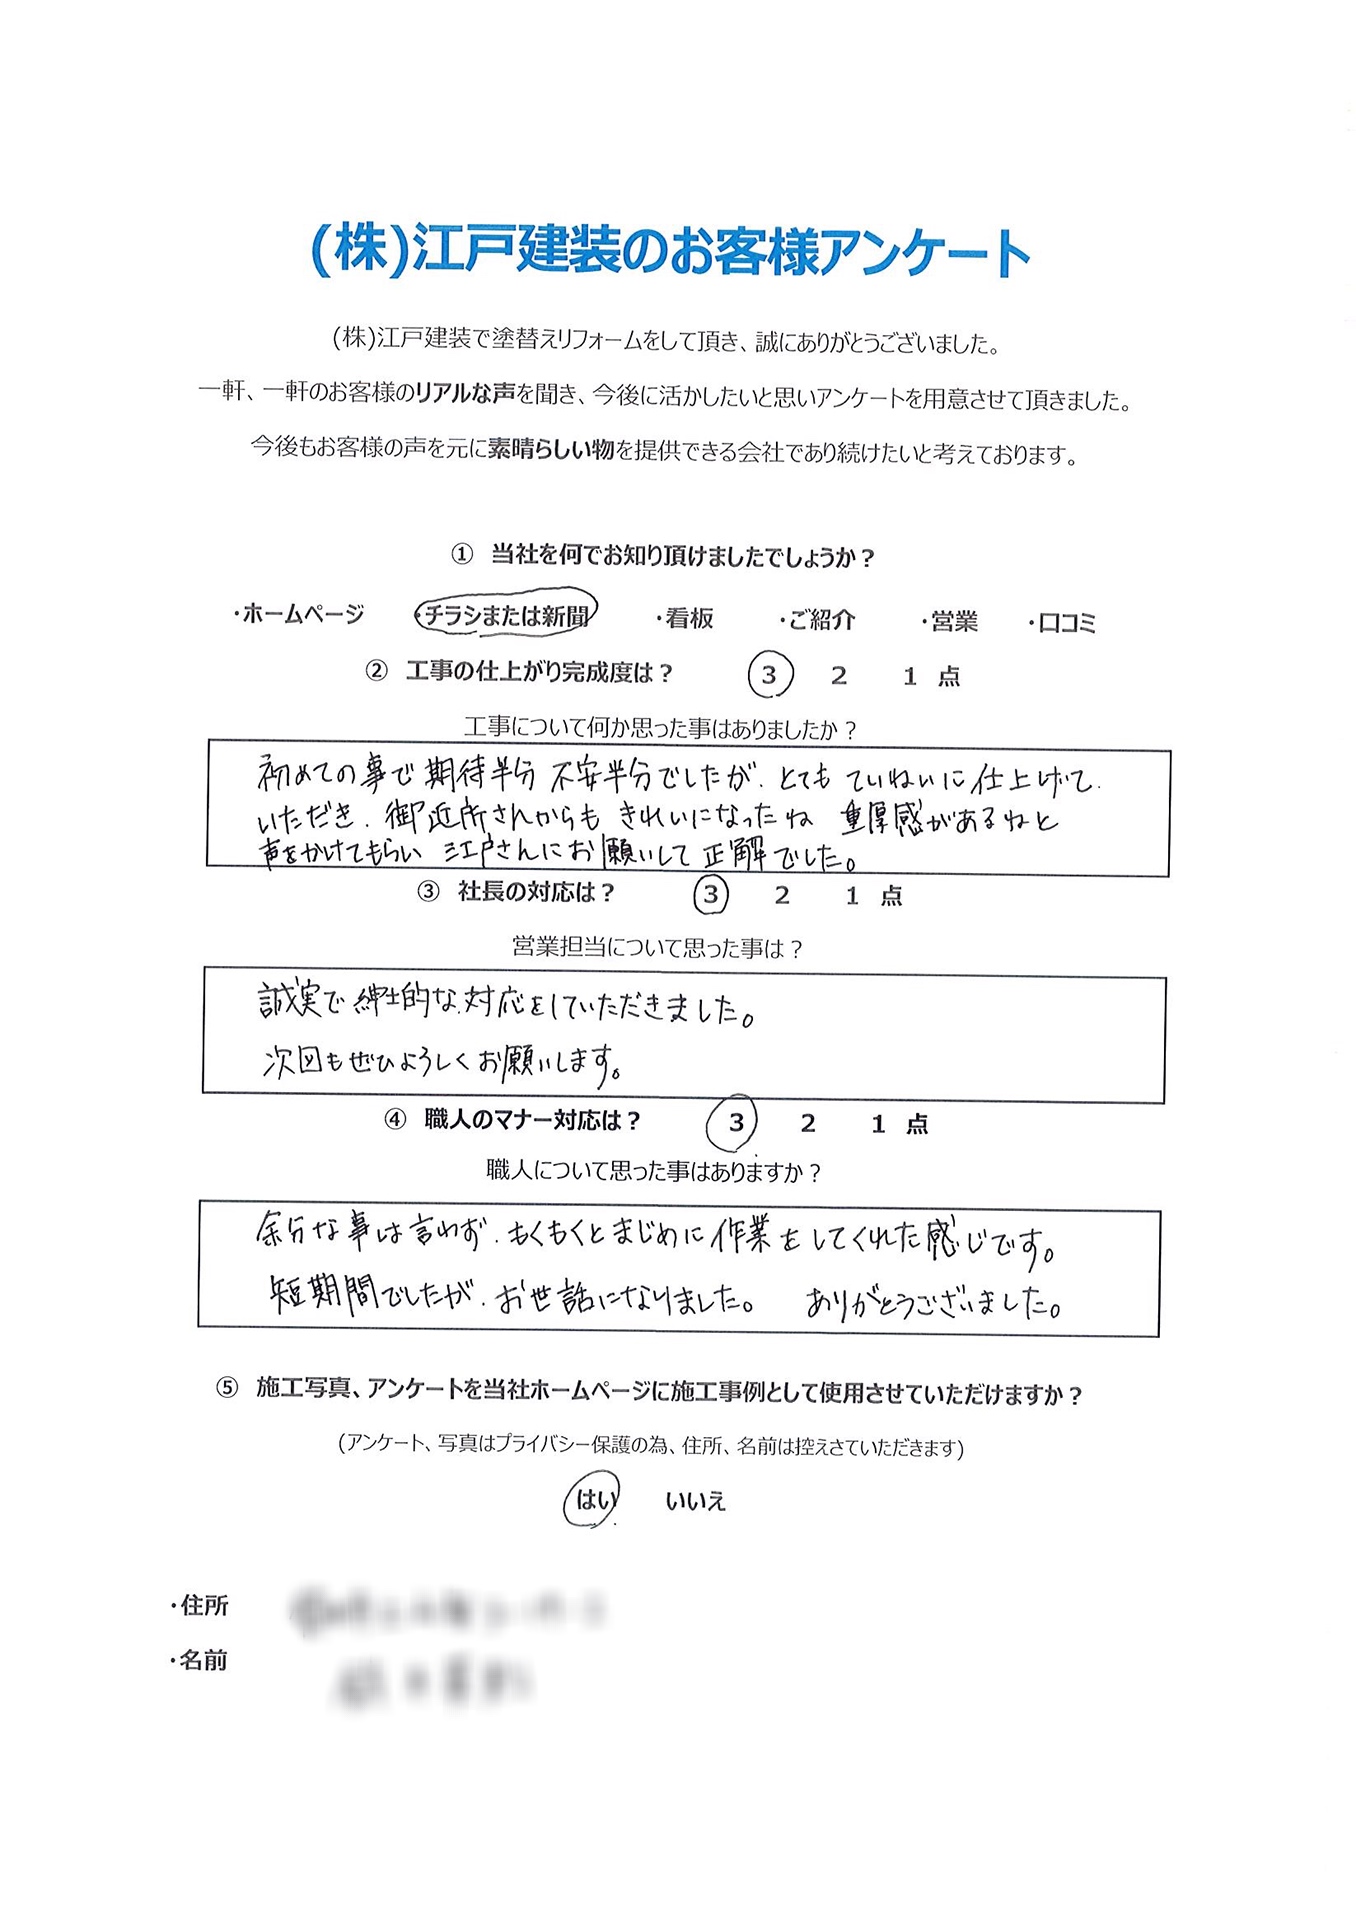 (株)江戸建装のお客様アンケート
(株)江戸建装で塗替えリフォームをして頂き、誠にありがとうございました。
一軒、一軒のお客様のリアルな声を聞き、今後に活かしたいと思いアンケートを用意させて頂きました。
今後もお客様の声を元に素晴らしい物を提供できる会社であり続けたいと考えております。
① 当社を何でお知り頂けましたでしょうか？
・ホームページ ・チラシまたは新聞 ・看板 ・ご紹介 ・営業 ・口コミ
② 工事の仕上がり完成度は？ 3 2 1 点
工事について何か思った事はありましたか？
初めての事で期待半分 不安半分でしたが、とても ていねいに仕上げて
いただき、御近所さんからも きれいになったね 重厚感があるねと
声をかけてもらい 江戸さんにお願いして正解でした。
③ 社長の対応は？ 3 2 1 点
営業担当について思った事は？
誠実で紳士的な対応をしていただきました。
次回もぜひよろしくお願いします。
④ 職人のマナー対応は？ 3 2 1 点
職人について思った事はありますか？
余分な事は言わず、もくもくとまじめに作業をしてくれた感じです。
短期間でしたが、お世話になりました。 ありがとうございました。
⑤ 施工写真、アンケートを当社ホームページに施工事例として使用させていただけますか？
(アンケート、写真はプライバシー保護の為、住所、名前は控えさていただきます)
はい いいえ
・住所
・名前